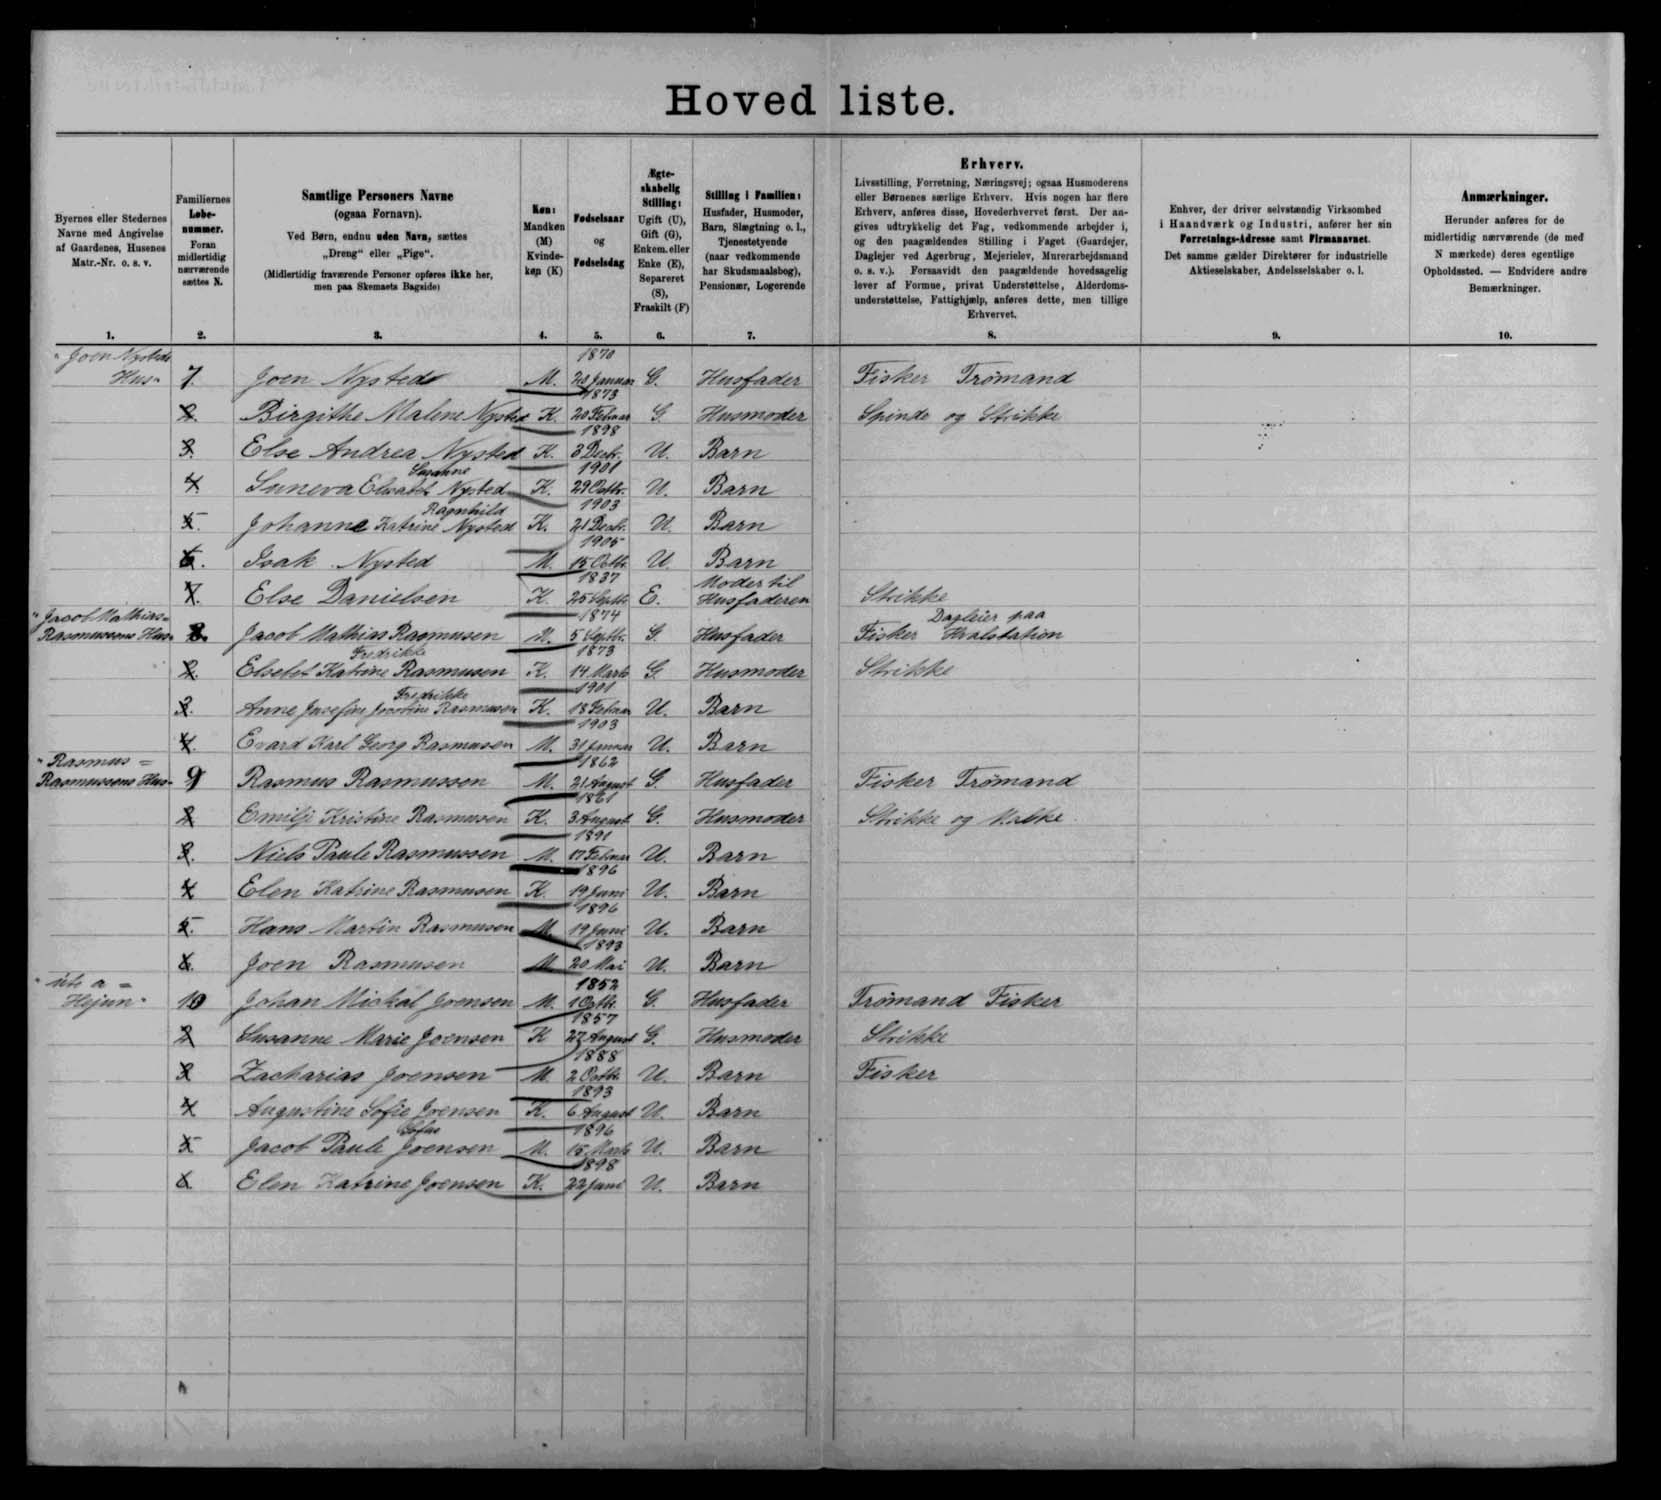 Hoved liste.
Byernes eller Stedernes
Navne med Angivelse
af Gaardenes, Husenes
Matr.-Nr. o. s. v.
1.
Familiernes
Løbe-
nummer.
Foran
midlertidig
nærværende
sættes N.
2.
Samtlige Personers Navne
(ogsaa Fornavn).
Ved Børn, endnu uden Navn, sættes
„Dreng“ eller „Pige“.
(Midlertidig fraværende Personer opføres ikke her,
men paa Skemaets Bagside)
3.
Køn:
Mandkøn
(M)
Kvinde-
køn (K)
4.
Fødselsaar
og
Fødselsdag
5.
Ægte-
skabelig
Stilling:
Ugift (U),
Gift (G),
Enkem. eller
Enke (E),
Separeret
(S),
Fraskilt (F)
6.
Stilling i Familien:
Husfader, Husmoder,
Barn, Slægtning o. l.,
Tjenestetyende
(naar vedkommende
har Skudsmaalsbog),
Pensionær, Logerende
7.
Erhverv.
Livsstilling, Forretning, Næringsvej; ogsaa Husmoderens
eller Børnenes særlige Erhverv. Hvis nogen har flere
Erhverv, anføres disse, Hovederhvervet først. Der an-
gives udtrykkelig det Fag, vedkommende arbejder i,
og den paagældendes Stilling i Faget (Guardejer,
Daglejer ved Agerbrug, Mejerielev, Murerarbejdsmand
o. s. v.). Forsaavidt den paagældende hovedsagelig
lever af Formue, privat Understøttelse, Alderdoms-
understøttelse, Fattighjælp, anføres dette, men tillige
Erhvervet.
8.
Enhver, der driver selvstændig Virksomhed
i Haandværk og Industri, anfører her sin
Forretnings-Adresse samt Firmanavnet.
Det samme gælder Direktører for industrielle
Aktieselskaber, Andelsselskaber o. l.
9.
Anmærkninger.
Herunder anføres for de
midlertidig nærværende (de med
N mærkede) deres egentlige
Opholdssted. — Endvidere andre
Bemærkninger.
10.
"Joen Nysteds 1870
Hus" 7 Joen Nysted M. 20 Januar G. Husfader Fisker Trømand
1873
2. Birgithe Malene Nysted K. 20 Februar G. Husmoder Spinde og Strikke
1898
3. Else Andrea Nysted K. 3 Decbr. U. Barn
Susanne 1901
4. Suneva Elsabet Nysted K. 29 Octbr. U. Barn
Ragnhild 1903
5. Johanne Katrine Nysted K. 21 Decbr. U. Barn
1905
6. Isak Nysted M. 15 Octbr. U. Barn
1837 Moder til
7. Else Danielsen K. 25 Septbr. E. Husfaderen Strikke
"Jacob Mathias= 1874 Dagleier paa
Rasmussens Hus" 8. Jacob Mathias Rasmusen M. 5 Septbr. G. Husfader Fisker Hvalstation
Fredrikke 1873
2. Elsebet Katrine Rasmusen K. 14 Marts G. Husmoder Strikke
Fredrikke 1901
3. Anne Josefine Justine Rasmusen K. 18 Februar U. Barn
1903
4. Evard Karl Georg Rasmusen M. 31 Januar U. Barn
"Rasmus = 1862
Rasmussens Hus" 9 Rasmus Rasmussen M. 21 August G. Husfader Fisker Trømand
1861
2 Emilje Kristine Rasmusen K. 3 August G. Husmoder Strikke og Malke
1891
3. Niels Paule Rasmussen M. 17 Februar U. Barn
1896
4 Elen Katrine Rasmusen K 19 Juni U. Barn
1896
5. Hans Martin Rasmusen M. 19 Juni U. Barn
1893
6. Joen Rasmusen M 20 Mai U. Barn
"úti a = 1852
Hejun" 10 Johan Mickal Joensen M. 1 Octbr. G. Husfader Trømand Fisker
1857
2 Susanne Marie Joensen K 22 August G. Husmoder Strikke
1888
3 Zacharias Joensen M. 2 Octbr. U. Barn Fisker
1893
4 Augustine Sofie Joensen K. 6 August U. Barn
Sofus 1896
5 Jacob Paule Joensen M. 15 Marts U. Barn
1898
6 Elen Katrine Joensen K. 22 Juni U. Barn